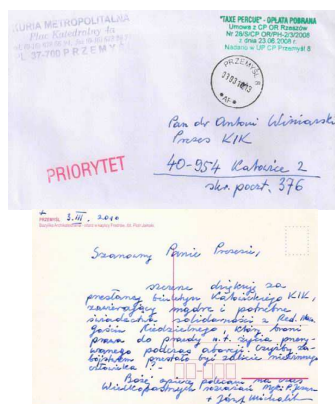 KURIA METROPOLITALNA
Plac Katedralny 4a
37-700 PRZEMYŚL
"TAXE PERCUE" - OPŁATA POBRANA
Umowa z CP OR Rzeszów
Nr 28/S/CP OR/PH-2/3/2008
z dnia 23.06.2008 r.
Nadano w UP CP Przemyśl 8
PRZEMYŚL 8
Pan dr Antoni Winiarski
Prezes KIK
40-954 Katowice 2
skr. poczt. 376
PRIORYTET
+
PRZEMYŚL, 3.III. 2010
Szanowny Panie Prezesie,
szczerze dziękuję za
przesłany biuletyn Katowickiego KIK,
zawierający mądre i potrzebne
świadectwo solidarności z Red.
Gościa Niedzielnego, który broni
prawa do prawdy n.t. życia
podczas aborcji. Czyżby za-
bójstwem przestało być zabicie niewinnego
człowieka !?-
Bożej opiece polecam
+ Józef Michalik